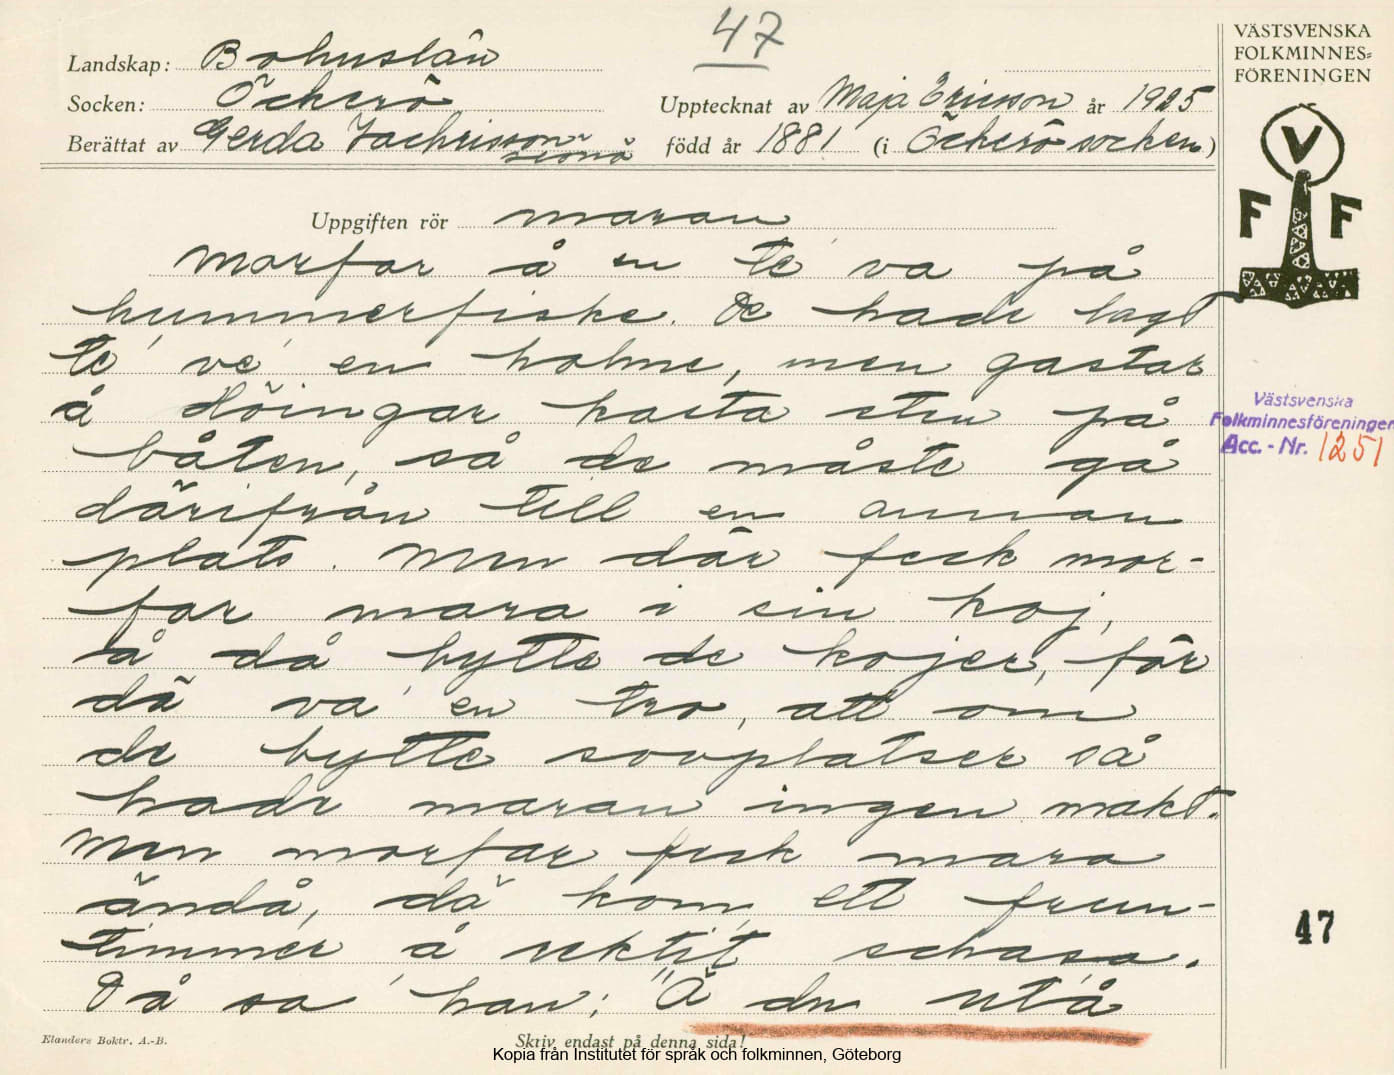 47
Landskap: Bohuslän
Socken: Öckerö
Upptecknat av Maja Ericsson år 1925
Berättat av Gerda Zachrisson
född år 1881 (i Öckerö socken)
VÄSTSVENSKA
FOLKMINNES=
FÖRENINGEN
V
F F
Uppgiften rör maran
Morfar å en te va på
hummerfiske. De hade lagt
te ve en holme, men gastar
å döingar kasta sten på
båten, så de måste gå
därifrån till en annan
plats. Men där feck mor-
far mara i sin koj,
å då bytte de kojer, för
dä va en tro, att om
de bytte sovplatser så
hade maran ingen makt.
Men morfar feck mara
ändå, dä kom ett frun-
timmer å schasa.
Då sa han: "Ä du utå
Västsvenska
Folkminnesföreningen
Acc. - Nr. 1251
47
Elanders Boktr. A.-B.
Skriv endast på denna sida!
Kopia från Institutet för språk och folkminnen, Göteborg